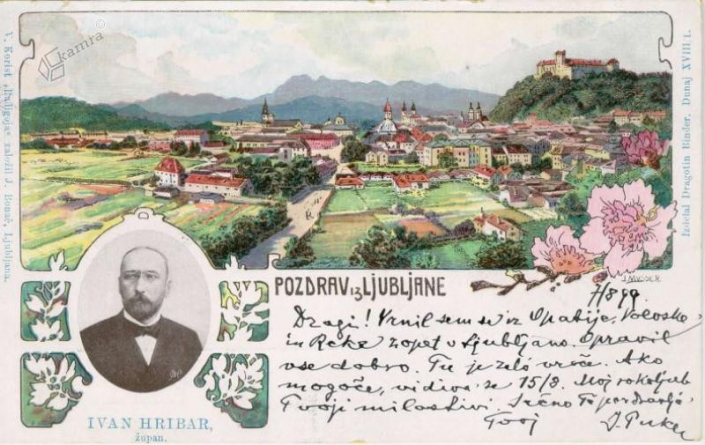 kamra
V. Korist „Radogoja“ založil J. Bonač, Ljubljana.
Izdelal Dragotin Binder, Dunaj XVIII/1.
POZDRAV iz LJUBLJANE
7/8 99
Dragi! Vrnil sem se iz Opatije, Volosko
in Reke zopet v Ljubljano. Opravil
vse dobro. Tu je zelo vroče. Ako
mogoče, vidiva se 15/8. Moj rokoljub
Tvoji milostivi. Srčno Te pozdravlja
Tvoj
IVAN HRIBAR,
župan.